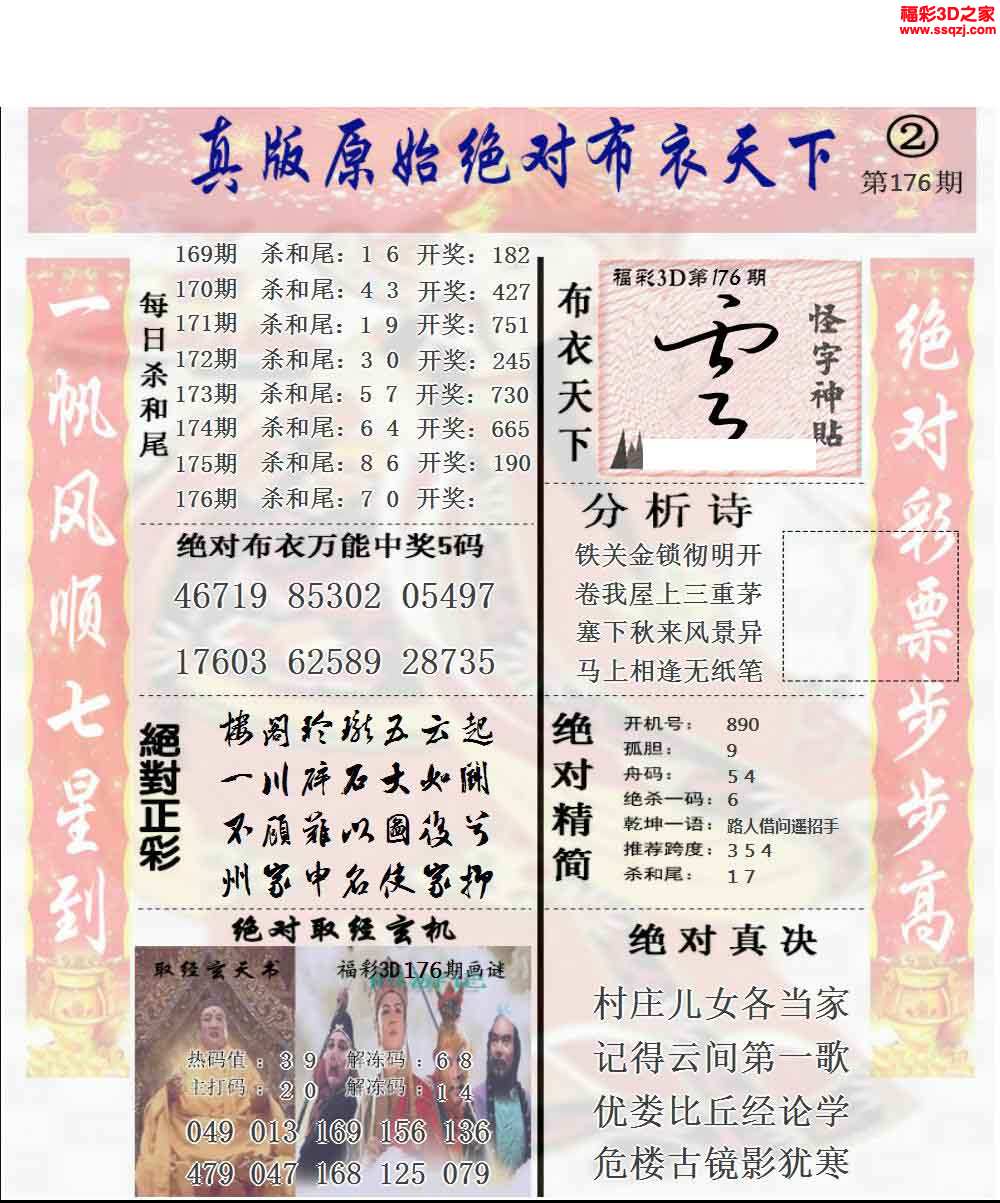 福彩3D之家
www.ssqzj.com
真版原始绝对布衣天下
②
第176期
一帆风顺七星到
每日杀和尾
169期 杀和尾：1 6 开奖：182
170期 杀和尾：4 3 开奖：427
171期 杀和尾：1 9 开奖：751
172期 杀和尾：3 0 开奖：245
173期 杀和尾：5 7 开奖：730
174期 杀和尾：6 4 开奖：665
175期 杀和尾：8 6 开奖：190
176期 杀和尾：7 0 开奖：
绝对布衣万能中奖5码
46719 85302 05497
17603 62589 28735
絕對正彩
楼阁玲珑五云起
一川碎石大如斗
不顾难以图后
州家申名使家抑
绝对取经玄机
取经玄天书
福彩3D176期画谜
热码值：3 9 解冻码：6 8
主打码：2 0 解冻码：1 4
049 013 169 156 136
479 047 168 125 079
布衣天下
福彩3D第176期
怪字神贴
分析诗
铁关金锁彻明开
卷我屋上三重茅
塞下秋来风景异
马上相逢无纸笔
绝对精简
开机号：890
孤胆：9
舟码：5 4
绝杀一码：6
乾坤一语：路人借问遥招手
推荐跨度：3 5 4
杀和尾：1 7
绝对真决
村庄儿女各当家
记得云间第一歌
优娄比丘经论学
危楼古镜影犹寒
绝对彩票步步高